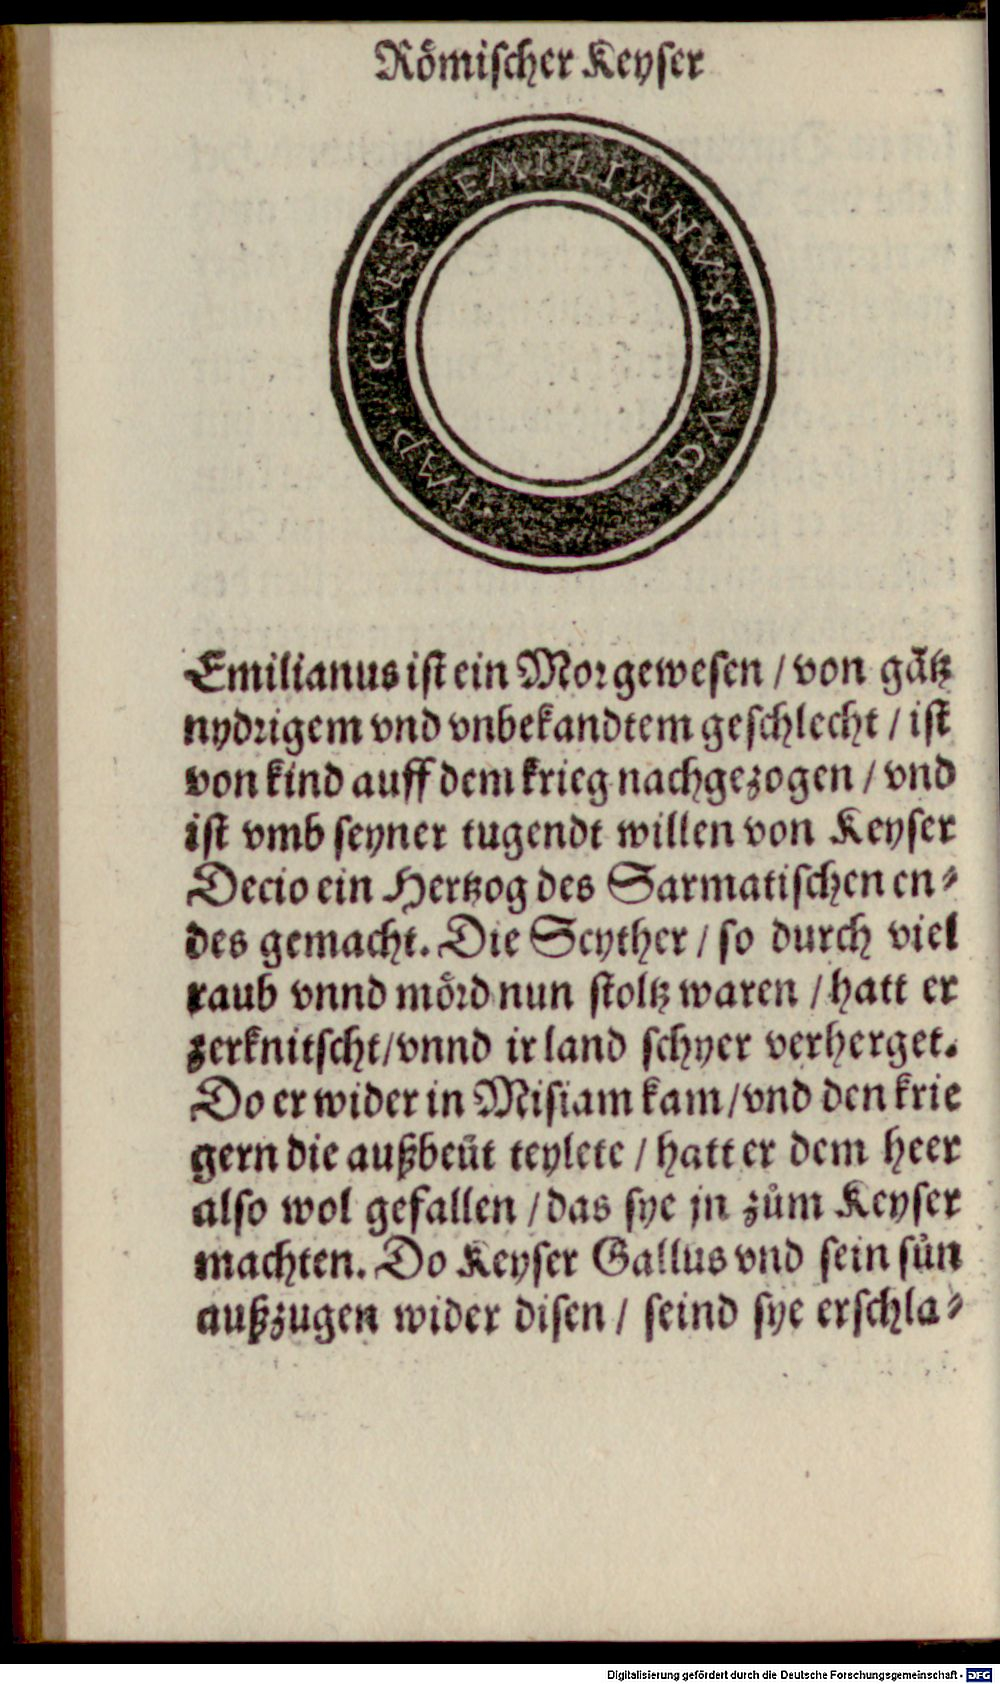 Römischer Keyser
IMP. CAES. EMILIANVS. AVG.
Emilianus ist ein Mor gewesen / von gãtz
nydrigem vnd vnbekandtem geschlecht / ist
von kind auff dem krieg nachgezogen / vnd
ist vmb seyner tugendt willen von Keyser
Decio ein Hertzog des Sarmatischen en-
des gemacht. Die Scyther / so durch viel
raub vnnd mörd nun stoltz waren / hatt er
zerknitscht / vnnd ir land schyer verherget.
Do er wider in Misiam kam / vnd den krie
gern die außbeüt teylete / hatt er dem heer
also wol gefallen / das sye jn zům Keyser
machten. Do Keyser Gallus vnd sein sün
außzugen wider disen / seind sye erschla-
Digitalisierung gefördert durch die Deutsche Forschungsgemeinschaft - DFG